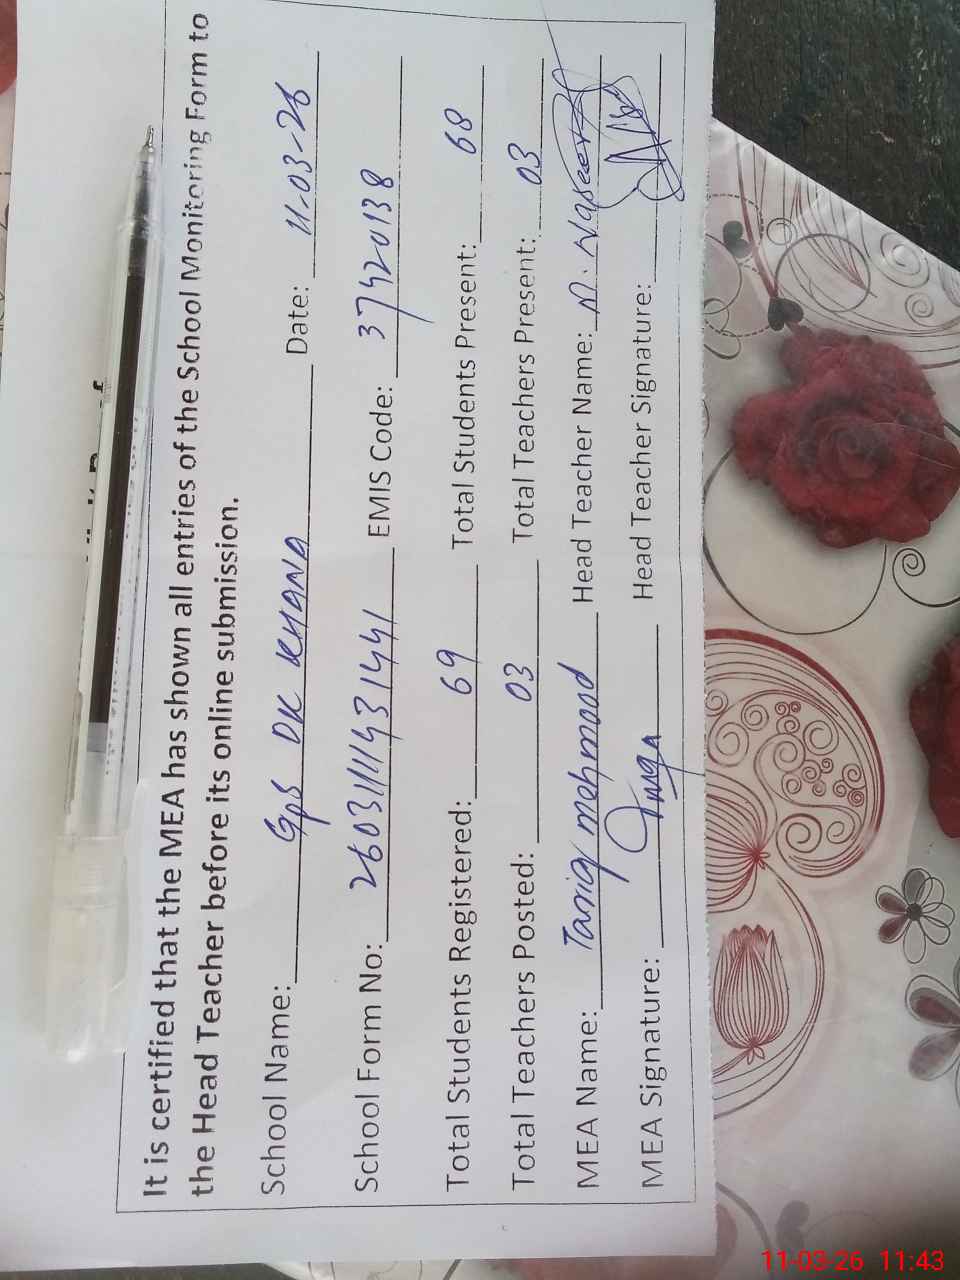 It is certified that the MEA has shown all entries of the School Monitoring Form to
the Head Teacher before its online submission.
School Name: GPS DK KHANA Date: 11-03-26
School Form No: 26031111431441 EMIS Code: 37420138
Total Students Registered: 69 Total Students Present: 68
Total Teachers Posted: 03 Total Teachers Present: 03
MEA Name: Tariq mehmood Head Teacher Name: M. Naseer
MEA Signature: Head Teacher Signature:
11-03-26 11:43